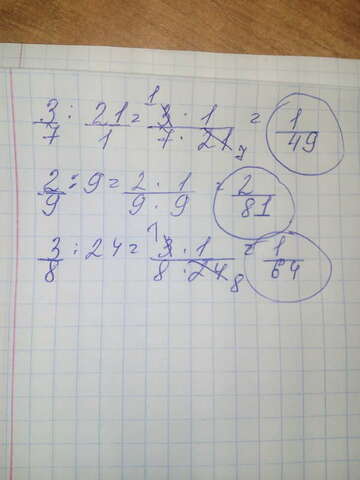 3/7 : 21/1 = 3 · 1 / 7 · 21 = 1/49
2/9 : 9 = 2 · 1 / 9 · 9 = 2/81
3/8 : 24 = 3 · 1 / 8 · 24 = 1/64